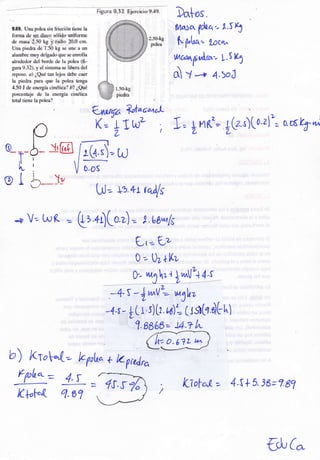 Figura 9.32 Ejercicio 9.49.
9.49. Una polea sin fricción tiene la
forma de un disco sólido uniforme
de masa 2.50 kg y radio 20.0 cm.
Una piedra de 1.50 kg se une a un
alambre muy delgado que se enrolla
alrededor del borde de la polea (fi-
gura 9.32), y el sistema se libera del
reposo. a) ¿Qué tan lejos debe caer
la piedra para que la polea tenga
4.50 J de energía cinética? b) ¿Qué
porcentaje de la energía cinética
total tiene la polea?
2.50-kg
polea
1.50-kg
piedra
Datos.
masa polea = 2.5 Kg
R polea = 20cm
masa piedra = 1.5 Kg
a) y → 4.50J
Energía Rotacional
K = 1/2 I ω² ; I = 1/2 MR² = 1/2 (2.5)(0.2)² = 0.05 Kg·m²
√(2(4.5)/0.05) = ω
ω = 13.41 rad/s
→ V = ωR = (13.41)(0.2) = 2.68 m/s
E1 = E2
0 = U2 + K2
0 = mgh2 + 1/2 mV² + 4.5
-4.5 - 1/2 mV² = mgh2
-4.5 - 1/2 (1.5)(2.68)² = (1.5)(9.8)(-h)
9.8868 = 14.7 h
h = 0.672 m
b) K Total = K polea + K piedra
K polea / K total = 4.5 / 9.89 = 45.5 % ; K total = 4.5 + 5.38 = 9.89
EduCa